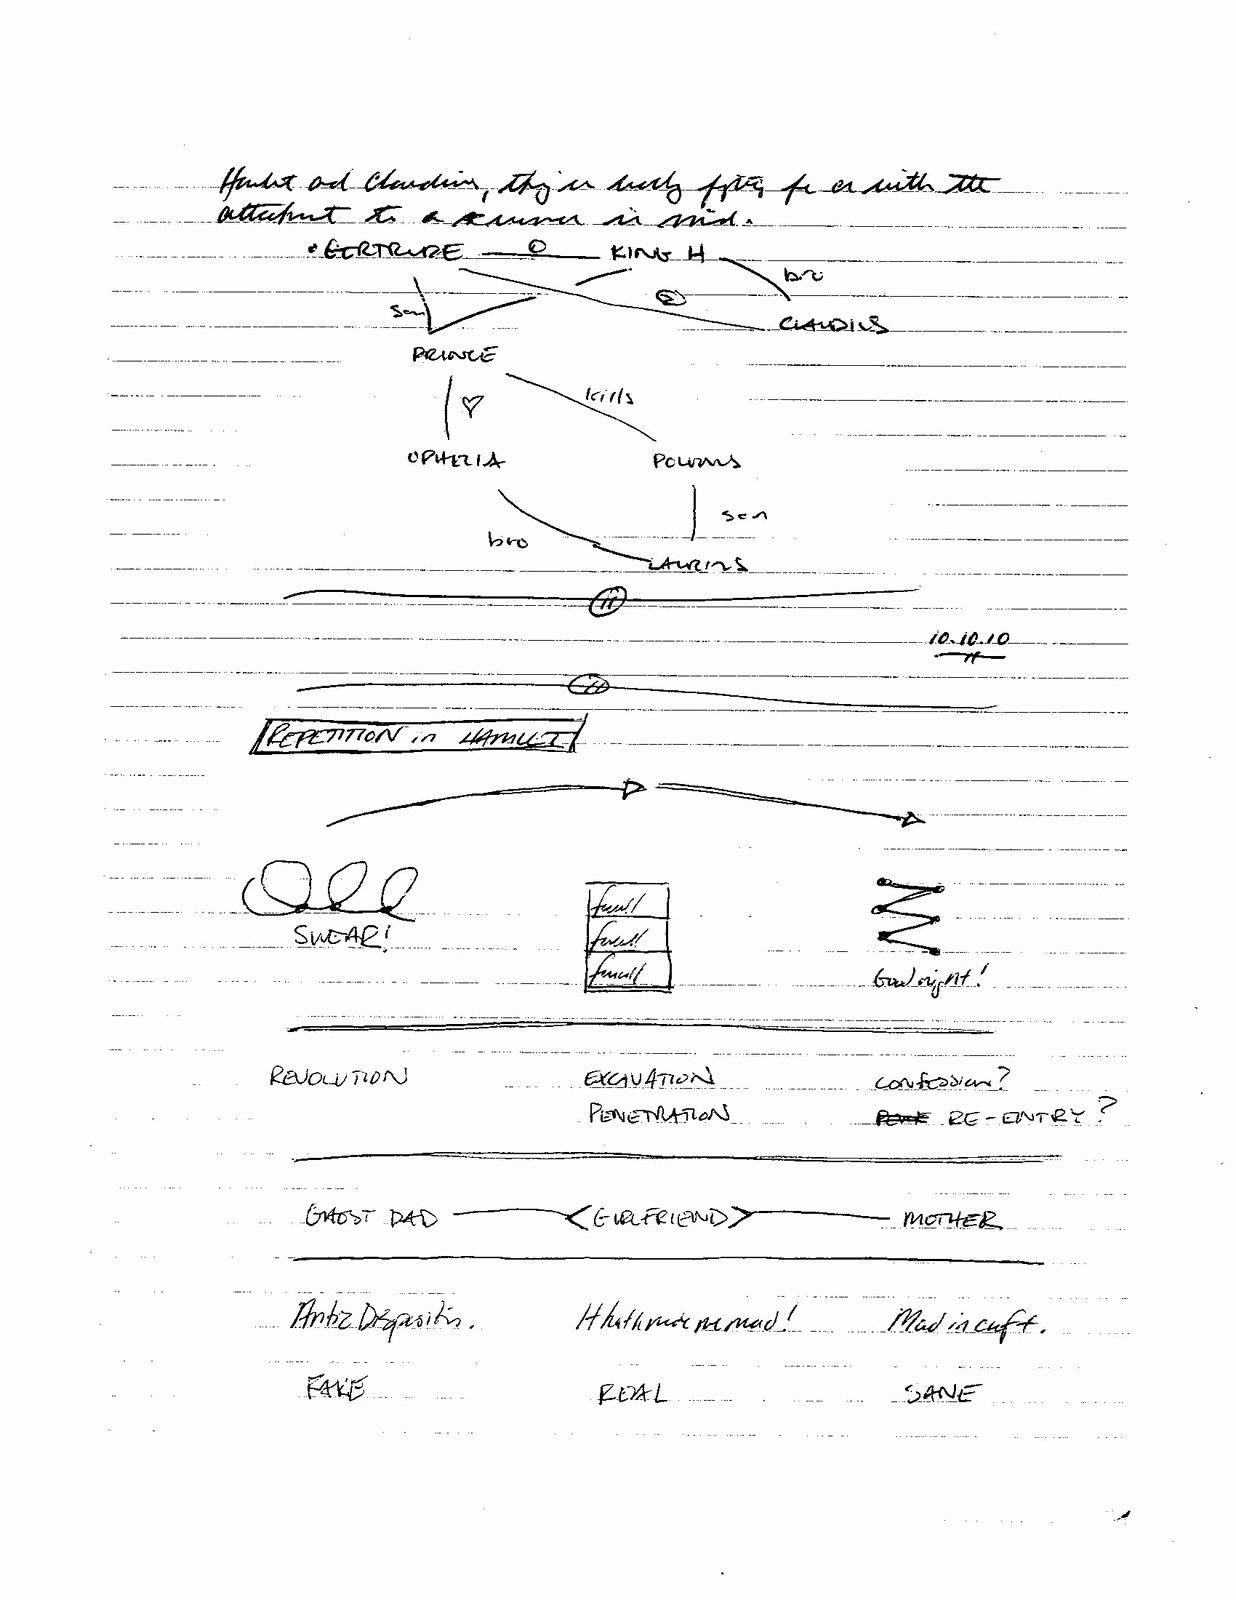 Hamlet and Claudius, they're both for or with the
attachment to a in mind.
• GERTRUDE O KING H
bro
son ②
CLAUDIUS
PRINCE
♡ kills
OPHELIA
son
bro
11
10.10.10
11
REPETITION in HAMLET
farewell
SWEAR! farewell
farewell
Good night!
REVOLUTION EXCAVATION confession?
PENETRATION RE-ENTRY?
GHOST DAD <GIRLFRIEND> MOTHER
Antic Disposition. It hath made me mad! Mad in craft.
FAKE REAL SANE